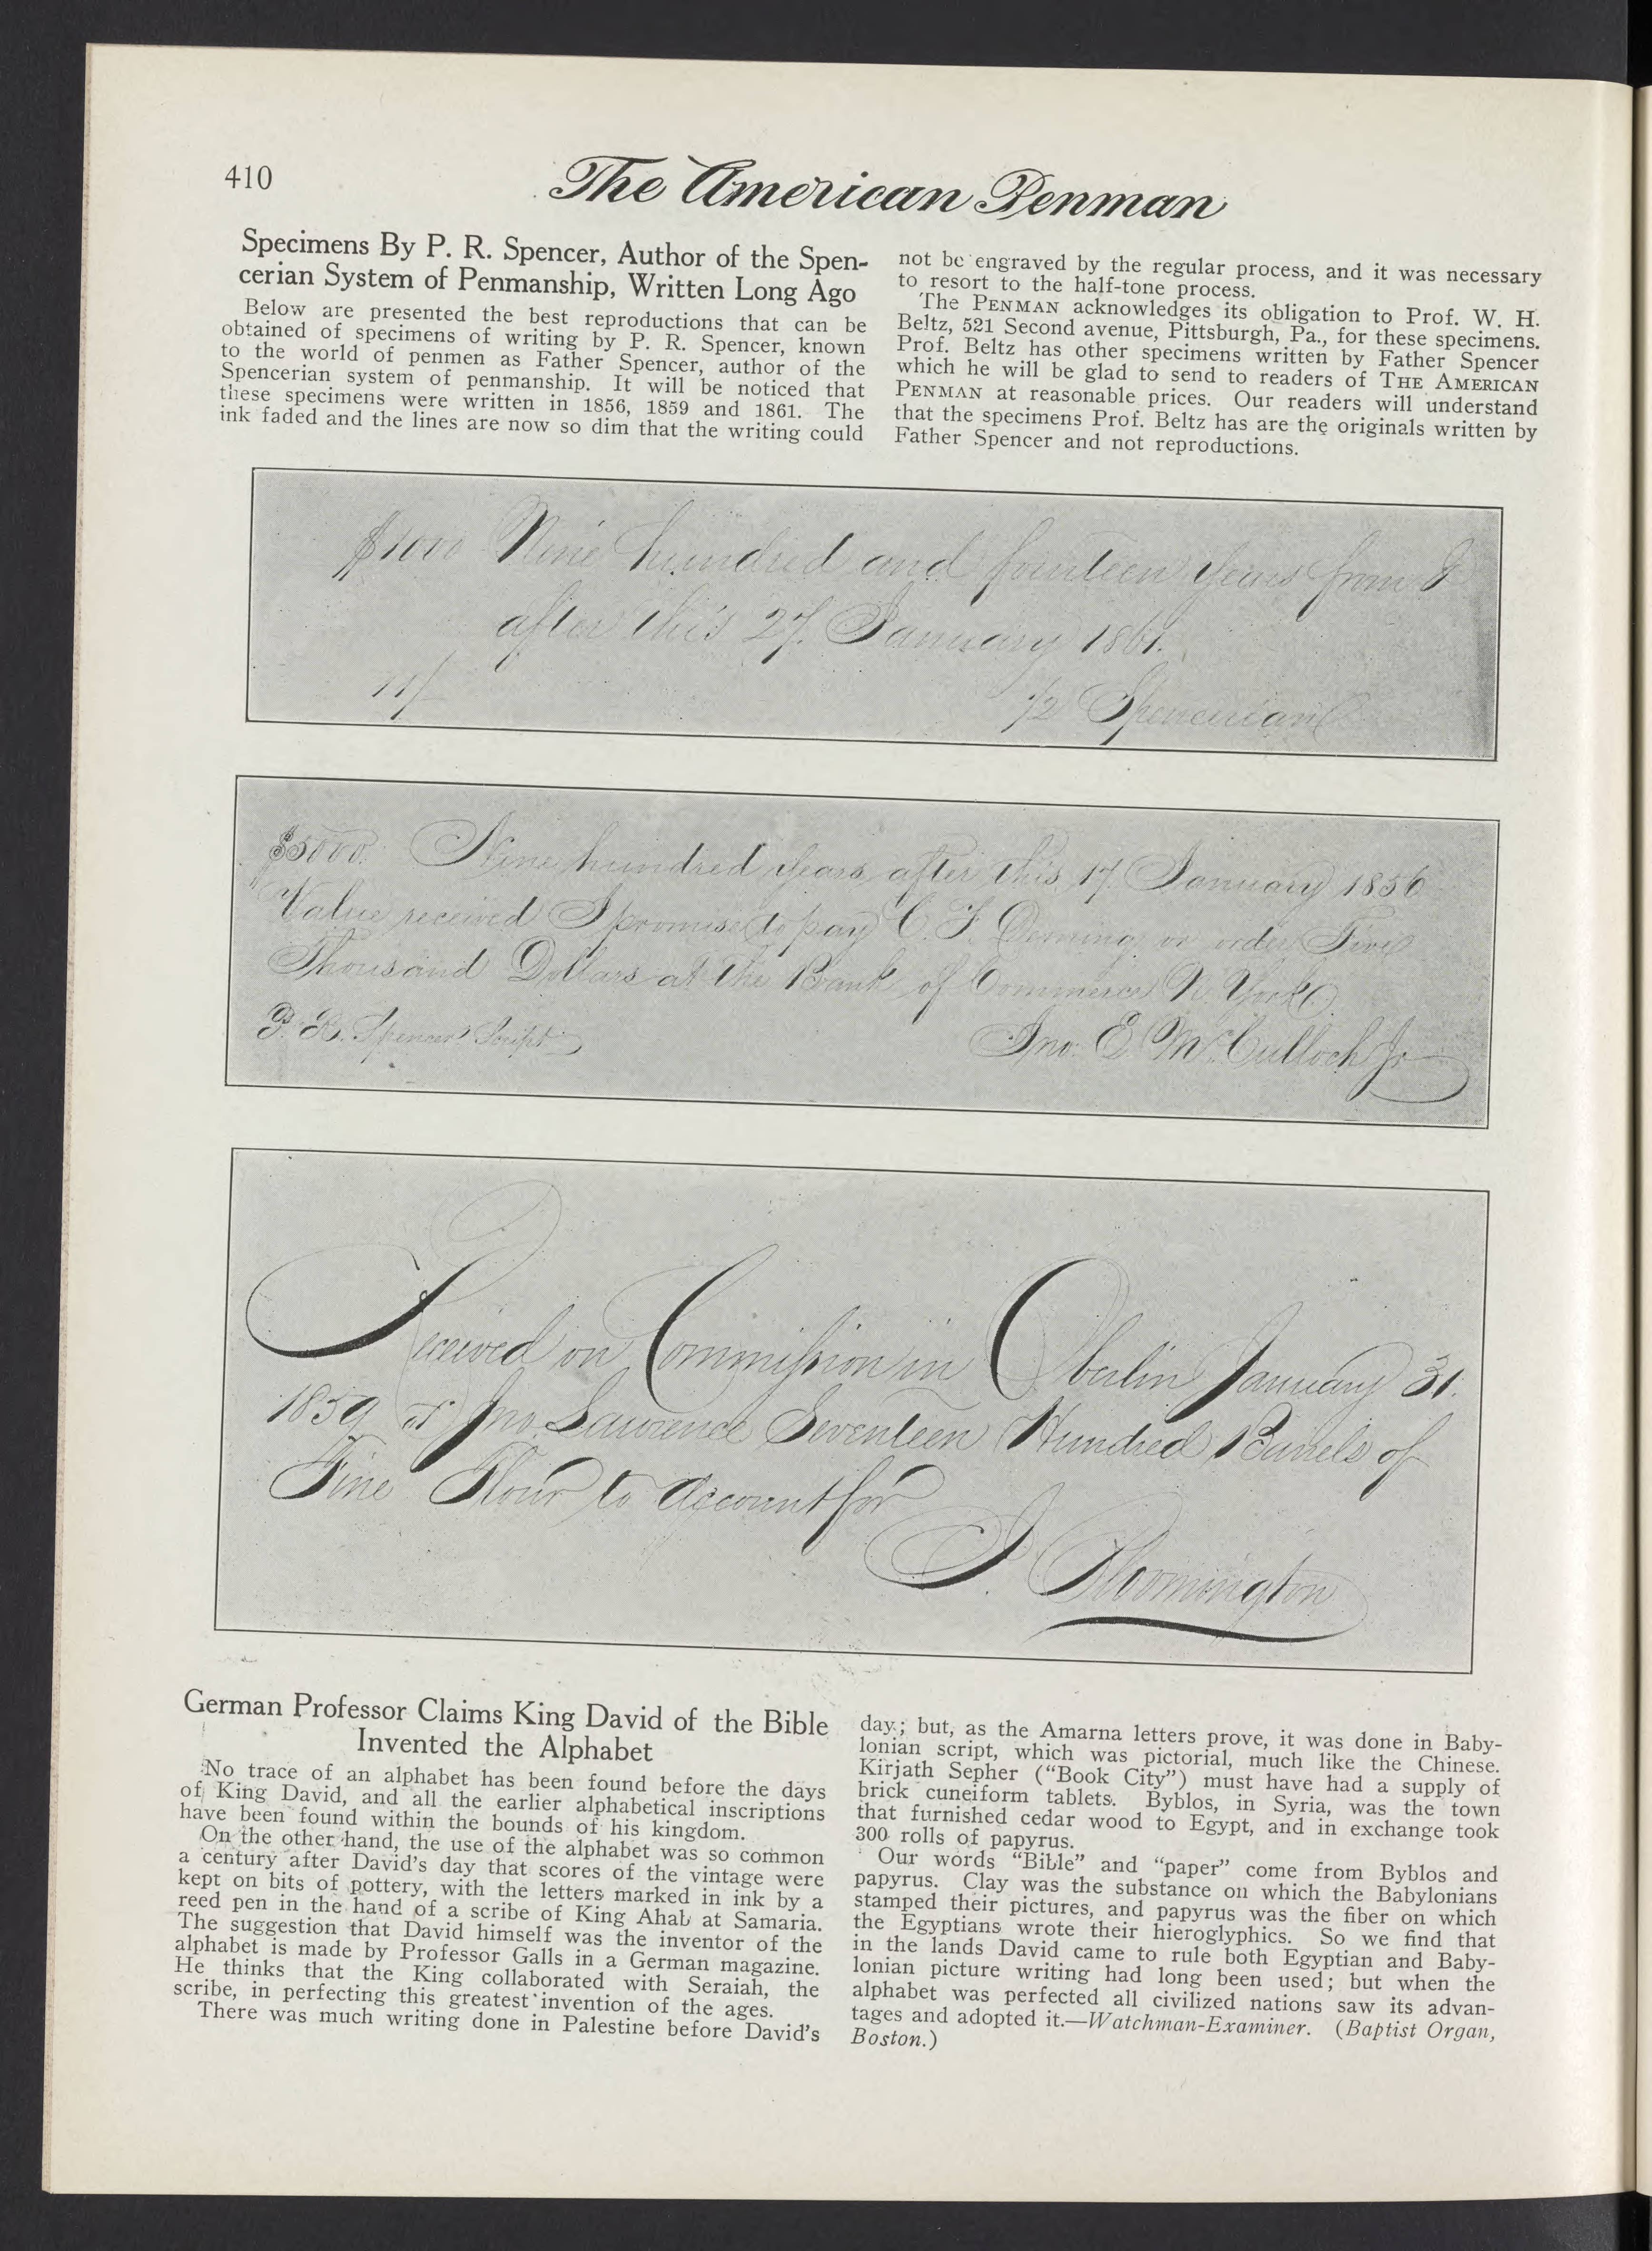 410
The American Penman
Specimens By P. R. Spencer, Author of the Spen-
cerian System of Penmanship, Written Long Ago
Below are presented the best reproductions that can be
obtained of specimens of writing by P. R. Spencer, known
to the world of penmen as Father Spencer, author of the
Spencerian system of penmanship. It will be noticed that
these specimens were written in 1856, 1859 and 1861. The
ink faded and the lines are now so dim that the writing could
not be engraved by the regular process, and it was necessary
to resort to the half-tone process.
The PENMAN acknowledges its obligation to Prof. W. H.
Beltz, 521 Second avenue, Pittsburgh, Pa., for these specimens.
Prof. Beltz has other specimens written by Father Spencer
which he will be glad to send to readers of THE AMERICAN
PENMAN at reasonable prices. Our readers will understand
that the specimens Prof. Beltz has are the originals written by
Father Spencer and not reproductions.
$1000 Nine hundred and fourteen years from &
after this 27. January 1861.
Spencerian
$5000. Nine hundred years after this 17. January 1856
Value received I promise to pay C. F. Deming or order Five
Thousand Dollars at the Bank of Commerce N. York
P. R. Spencer Script
Jno. E. McCulloch Jr
Received on Commission in Oberlin January 31.
1859 of Jno. Lawrence Seventeen Hundred Barrels of
Fine Flour to account for
J. Bloomington
German Professor Claims King David of the Bible
Invented the Alphabet
No trace of an alphabet has been found before the days
of King David, and all the earlier alphabetical inscriptions
have been found within the bounds of his kingdom.
On the other hand, the use of the alphabet was so common
a century after David's day that scores of the vintage were
kept on bits of pottery, with the letters marked in ink by a
reed pen in the hand of a scribe of King Ahab at Samaria.
The suggestion that David himself was the inventor of the
alphabet is made by Professor Galls in a German magazine.
He thinks that the King collaborated with Seraiah, the
scribe, in perfecting this greatest invention of the ages.
There was much writing done in Palestine before David's
day; but, as the Amarna letters prove, it was done in Baby-
lonian script, which was pictorial, much like the Chinese.
Kirjath Sepher ("Book City") must have had a supply of
brick cuneiform tablets. Byblos, in Syria, was the town
that furnished cedar wood to Egypt, and in exchange took
300 rolls of papyrus.
Our words "Bible" and "paper" come from Byblos and
papyrus. Clay was the substance on which the Babylonians
stamped their pictures, and papyrus was the fiber on which
the Egyptians wrote their hieroglyphics. So we find that
in the lands David came to rule both Egyptian and Baby-
lonian picture writing had long been used; but when the
alphabet was perfected all civilized nations saw its advan-
tages and adopted it.—Watchman-Examiner. (Baptist Organ,
Boston.)